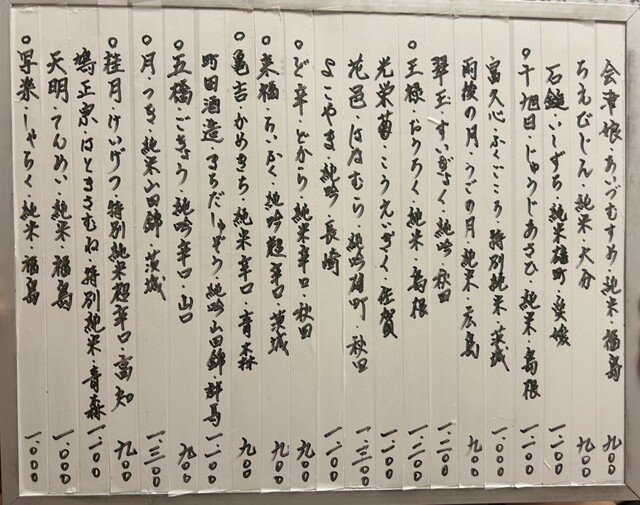 会津娘・あいづむすめ・純米・福島 九〇〇
ちえびじん・純米・大分 九〇〇
石鎚・いしずち・純米雄町・愛媛 一.二〇〇
○十旭日・じゅうじあさひ・純米・島根 一.一〇〇
富久心・ふくごころ・特別純米・茨城 一.〇〇〇
雨後の月・うごの月・純米・広島 九〇〇
翠玉・すいぎょく・純吟・秋田 一.二〇〇
○王祿・おうろく・純米・島根 一.二〇〇
光栄菊・こうえいぎく・佐賀 一.一〇〇
花邑・はなむら・純吟雄町・秋田 一.三〇〇
よこやま・純吟・長崎 一.一〇〇
○ど辛・どから・純米辛口・秋田 九〇〇
○来福・らいふく・純吟超辛口・茨城 九〇〇
○亀吉・かめきち・純米・辛口・青森 九〇〇
町田酒造・まちだしゅぞう・純吟・山田錦・群馬 一.一〇〇
○五橋・ごきょう・純吟辛口・山口 九〇〇
○月・つき・純米山田錦・茨城 一.三〇〇
○桂月・けいげつ・特別純米超辛口・高知 九〇〇
鳩正宗・はとまさむね・特別純米・青森 一.一〇〇
天明・てんめい・純米・福島 一.〇〇〇
○写楽・しゃらく・純米・福島 一.〇〇〇